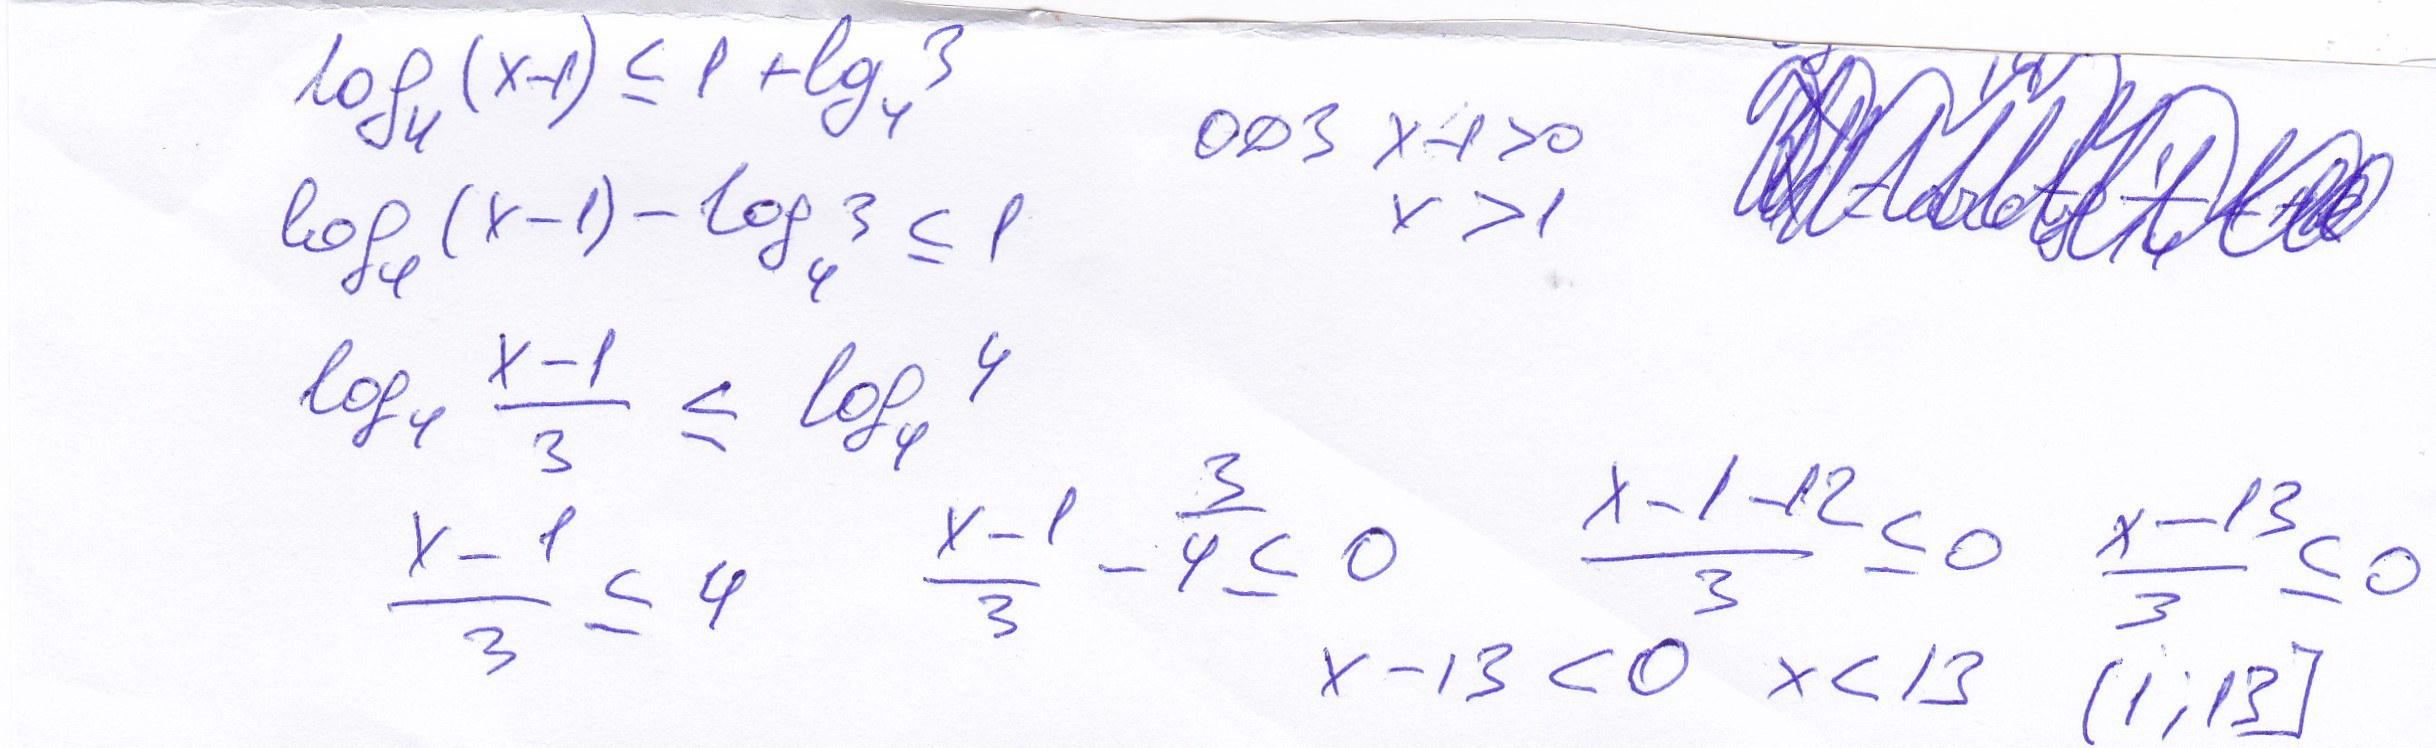 log₄(x-1) ≤ 1 + lg₄3
ОДЗ x-1>0
x>1
log₄(x-1) - log₄3 ≤ 1
log₄ (x-1)/3 ≤ log₄4
(x-1)/3 ≤ 4 (x-1)/3 - 3/4 ≤ 0 (x-1-12)/3 ≤ 0 (x-13)/3 ≤ 0
x-13<0 x<13 (1;13]